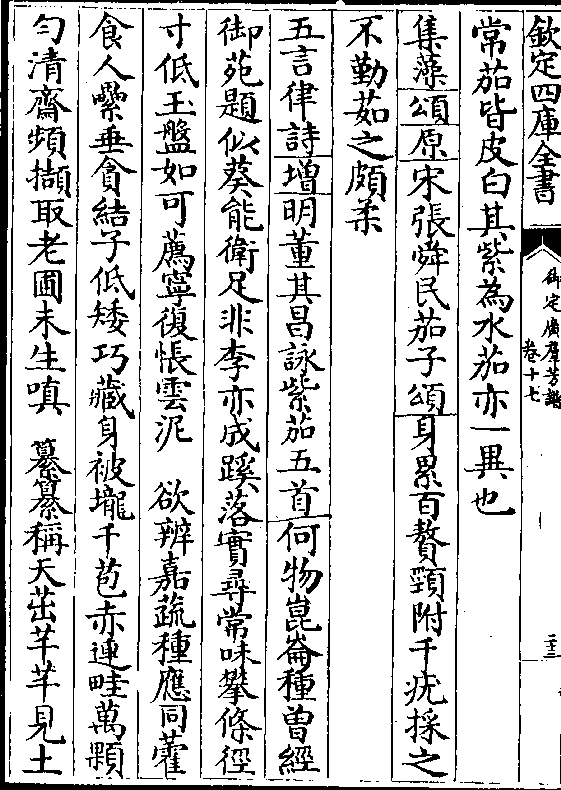 欽定四庫全書
御定廣羣芳譜
卷十七
二十三
常茄皆皮白其紫為水茄亦一異也
集藻頌原宋張舜民茄子頌身累百贅頸附千疣採之
不勤茹之頗柔
五言律詩增明董其昌詠紫茄五首何物崑崙種曽經
御苑題似葵能衛足非李亦成蹊落實尋常味攀條徑
寸低玉盤如可薦寧復悵雲泥　欲辨嘉蔬種應同藿
食人纍垂貪結子低矮巧藏身被壠千苞赤連畦萬顆
勻清齋頻擷取老圃未生嗔　纂纂稱天茁芊芊見土